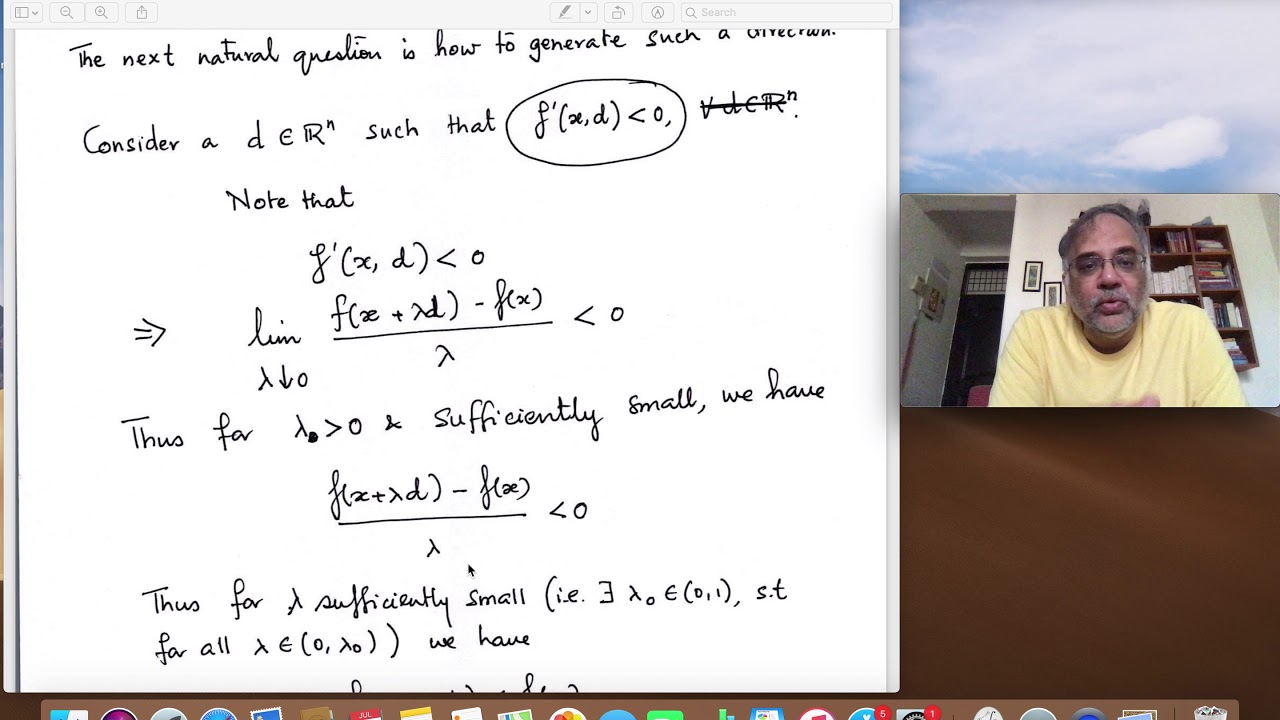 Search
The next natural question is how to generate such a direction.
Consider a d ∈ ℝⁿ such that f'(x,d) < 0, ∀ d ∈ ℝⁿ.
Note that
f'(x, d) < 0
⇒ lim λ↓0 f(x + λd) - f(x) / λ < 0
Thus for λ > 0 & sufficiently small, we have
f(x+λd) - f(x) / λ < 0
Thus for λ sufficiently small (i.e. ∃ λ₀ ∈ (0,1), s.t
for all λ ∈ (0, λ₀)) we have
JUL
5
1